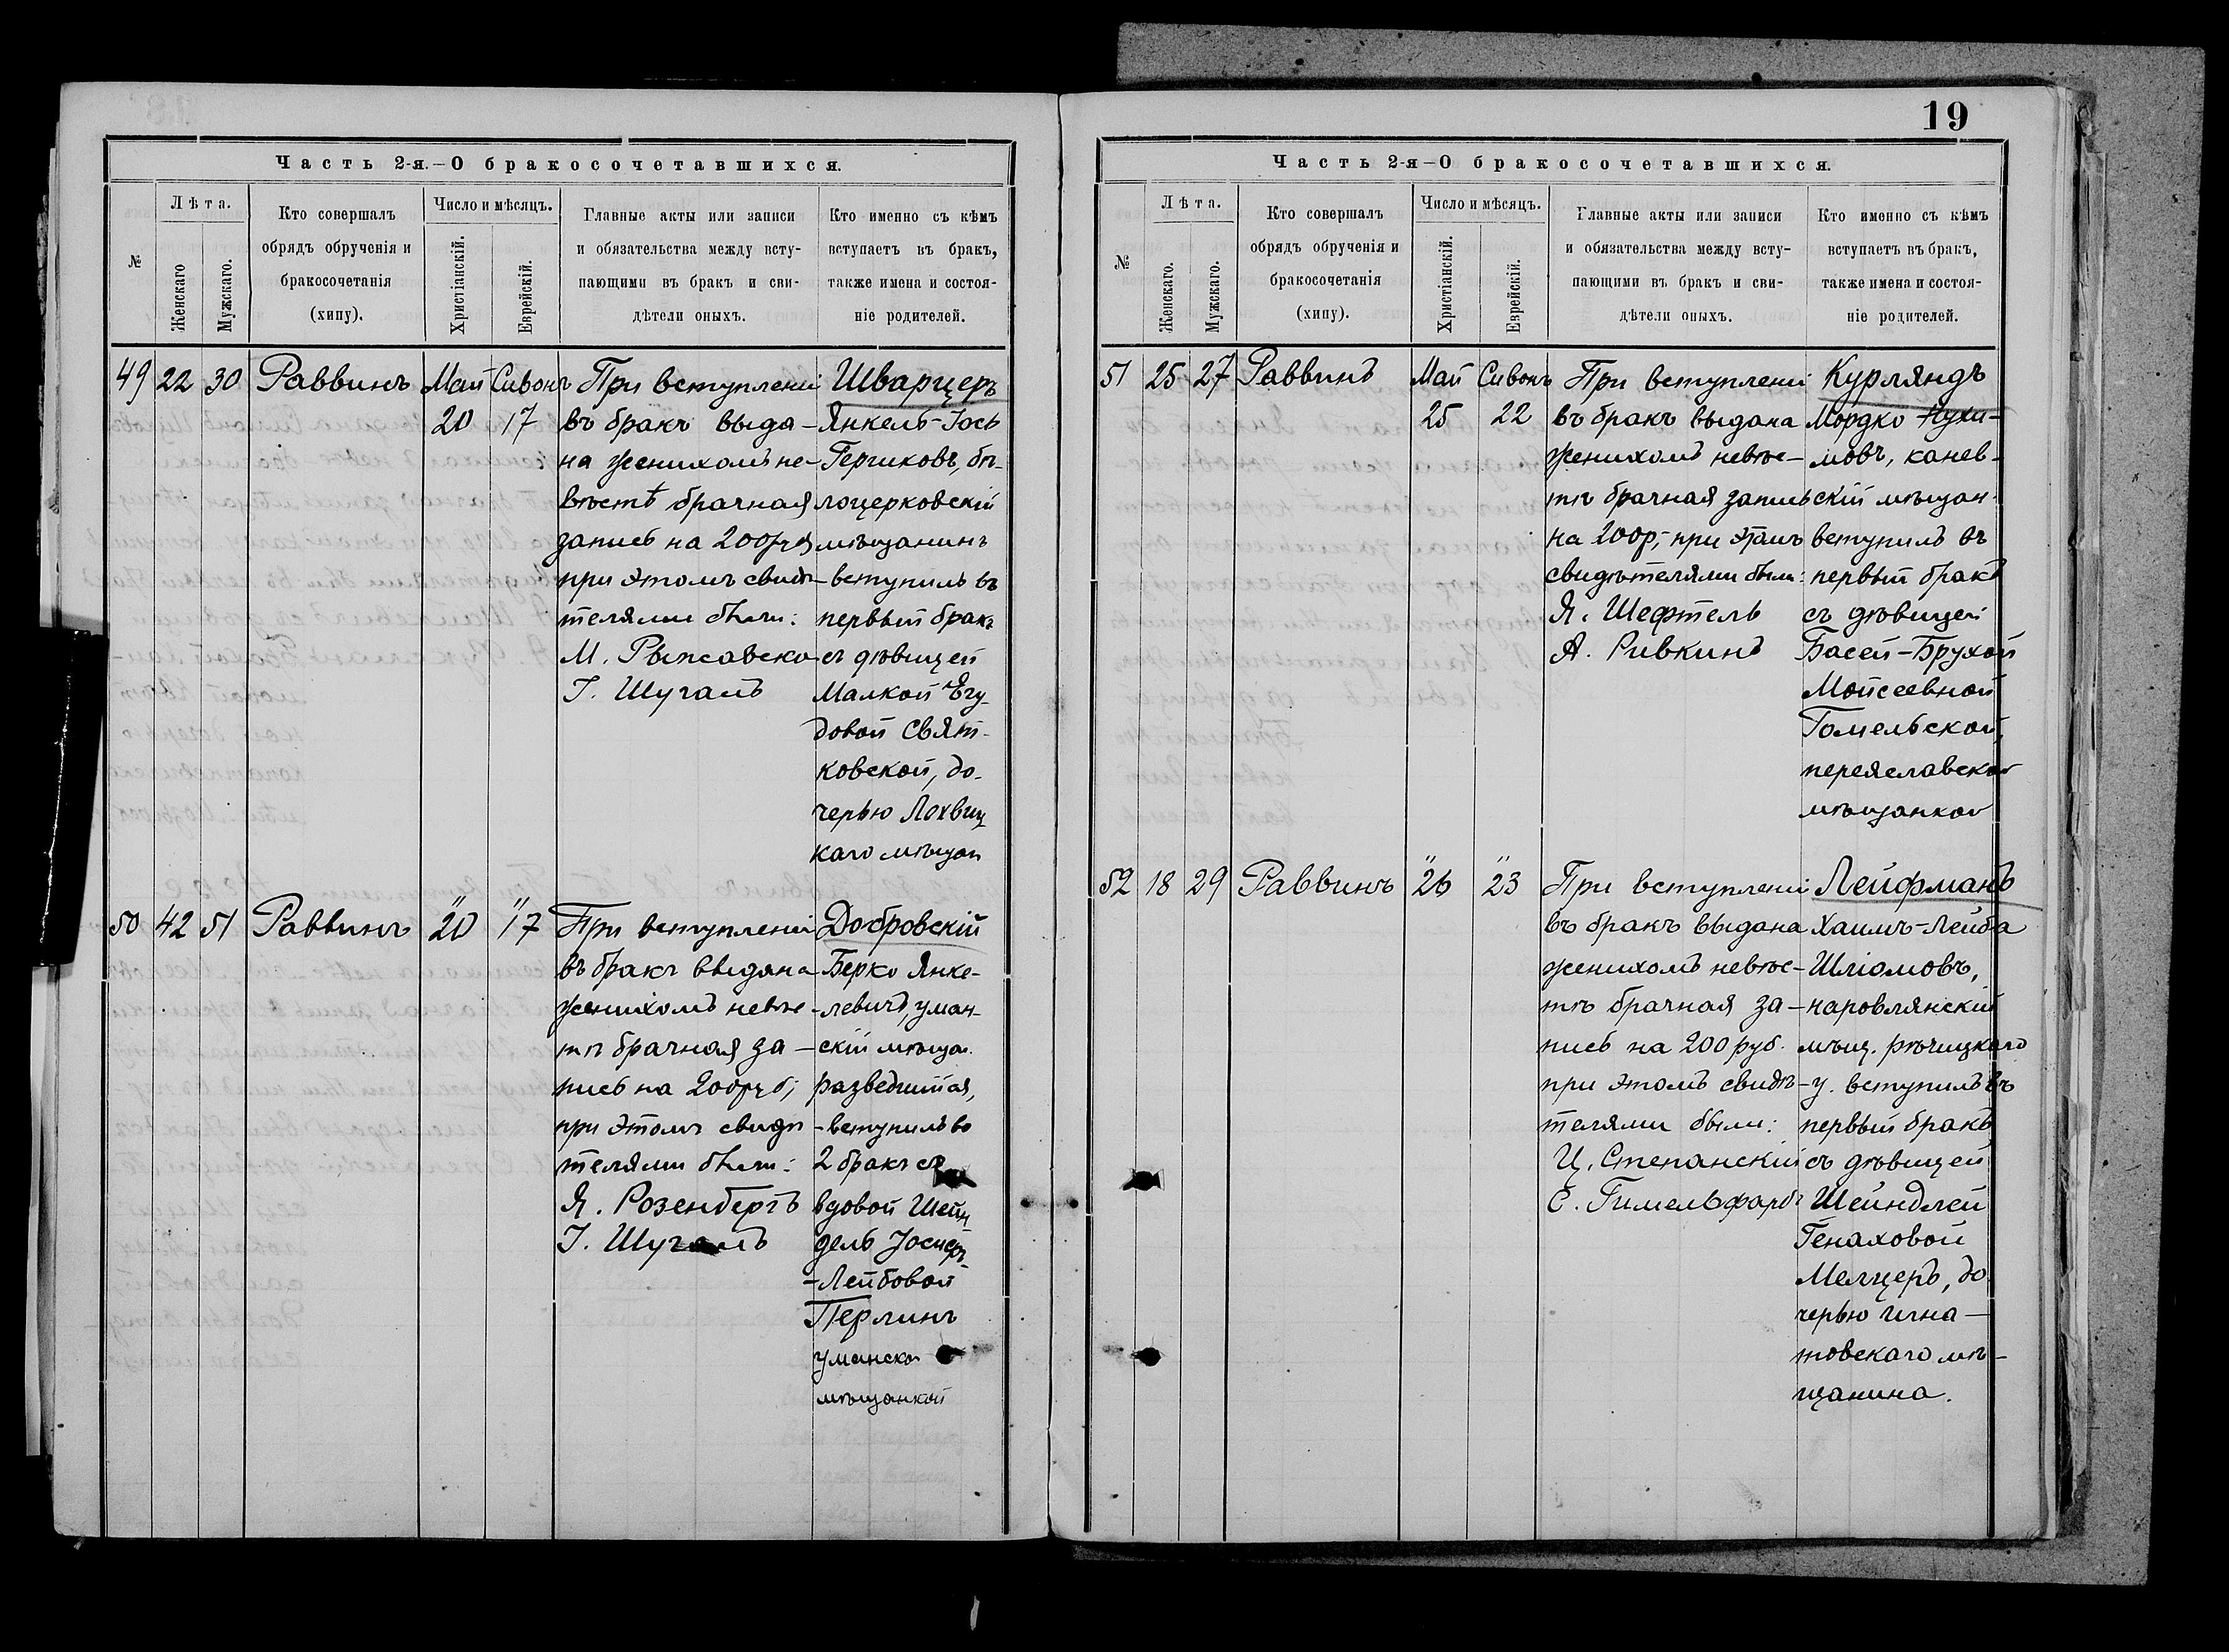 Часть 2-я.—О бракосочетавшихся.
№
Лѣта.
Женскаго
Мужскаго.
Кто совершалъ
обрядъ обрученія и
бракосочетанія
(хипу).
Число и мѣсяцъ.
Христіанскій.
Еврейскій.
Главные акты или записи
и обязательства между всту-
пающими въ бракъ и сви-
дѣтели оныхъ.
Кто именно съ кѣмъ
вступаетъ въ бракъ,
также имена и состоя-
ніе родителей.
49 22 30 Раввинъ Май Сивонъ
20 17
При вступленіи
въ бракъ выда-
на женихомъ не-
вѣстѣ брачная
запись на 200 руб
при этомъ свидѣ-
телями были:
М. Рыжавско
І. Шугаль
Шварцеръ
Янкель-Іось
Гершковъ, бѣ-
лоцерковскій
мѣщанинъ
вступилъ въ
первый бракъ
съ дѣвицей
Малкой Егу-
довой Свят-
ковской, до-
черью Лохвиц
каго мѣщан
50 42 51 Раввинъ " "
20 17
При вступленіи
въ бракъ выдана
женихомъ невѣс-
тѣ брачная за-
пись на 200 руб;
при этомъ свидѣ
телями были:
Я. Розенбергъ
І. Шугаль
Добровскій
Берко Янке-
левичъ, уман-
скій мѣщан.
разведшійся,
вступилъ во
2 бракъ съ
вдовой Шейн
дель Іосифъ
-Лейбовой
Перлинъ
уманско
мѣщанкой
19
Часть 2-я—О бракосочетавшихся.
№
Лѣта.
Женскаго.
Мужскаго.
Кто совершалъ
обрядъ обрученія и
бракосочетанія
(хипу).
Число и мѣсяцъ.
Христіанскій.
Еврейскій.
Главные акты или записи
и обязательства между всту-
пающими въ бракъ и сви-
дѣтели оныхъ.
Кто именно съ кѣмъ
вступаетъ въ бракъ,
также имена и состоя-
ніе родителей.
51 25 27 Раввинъ Май Сивонъ
25 22
При вступленіи
въ бракъ выдана
женихомъ невѣс-
тѣ брачная запись
на 200 р; при этомъ
свидѣтелями были:
Я. Шефтель
А. Ривкинъ
Курляндъ
Мордко Нухи-
мовъ, канев-
скій мѣщан.
вступилъ въ
первый бракъ
съ дѣвицей
Басей-Брухой
Мойсеевной
Гомельской,
переяславской
мѣщанкой
52 18 29 Раввинъ " "
26 23
При вступленіи
въ бракъ выдана
женихомъ невѣс-
тѣ брачная за-
пись на 200 руб.
при этомъ свидѣ-
телями были:
Ц. Степанскій
С. Гимельфарбъ
Лейфманъ
Хаимъ-Лейба
Шліомовъ,
наровлянскій
мѣщ. рѣчицкаго
у. вступилъ въ
первый бракъ
съ дѣвицей
Шейндлей
Генаховой
Мелцеръ, до
черью Игна-
товскаго мѣ-
щанина.